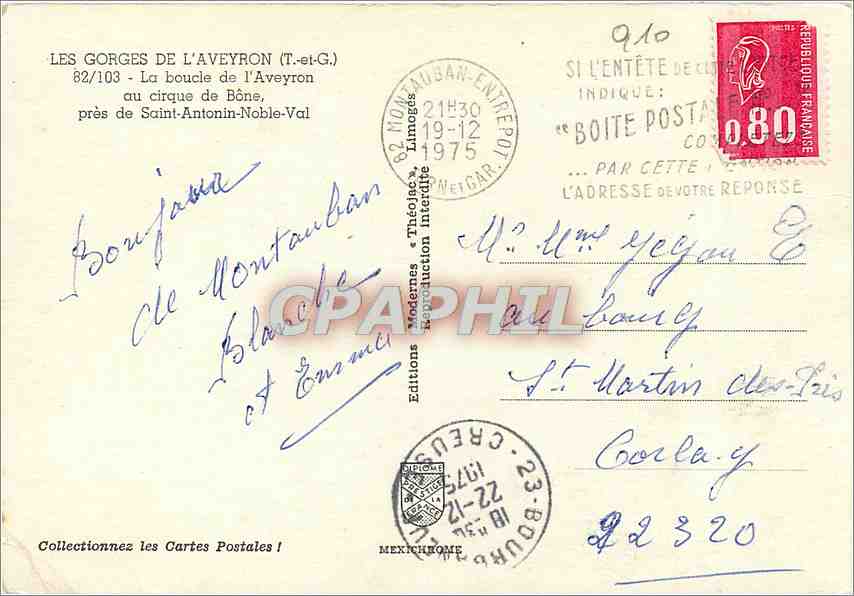 LES GORGES DE L'AVEYRON (T.-et-G.)
82/103 - La boucle de l'Aveyron
au cirque de Bône,
près de Saint-Antonin-Noble-Val
910
82 MONTAUBAN-ENTREPOT
21H30
19-12
1975
RN ET GAR.
SI L'ENTÊTE DE
INDIQUE:
"BOITE POSTALE
... PAR CETTE
L'ADRESSE DE VOTRE REPONSE
POSTES
REPUBLIQUE FRANÇAISE
0,80
Bonjour
de Montauban
Blanche
et Emma
Editions Modernes « Théojac », Limoges
Reproduction interdite
CPAPHIL
Mr Mme Jégou E
au bourg
St Martin des-Prés
Corlay
22320
23-BOURG
CREUSE
18
22-12
1975
DIPLOME
PRESTIGE
DE LA
FRANCE
Collectionnez les Cartes Postales !
MEXICHROME